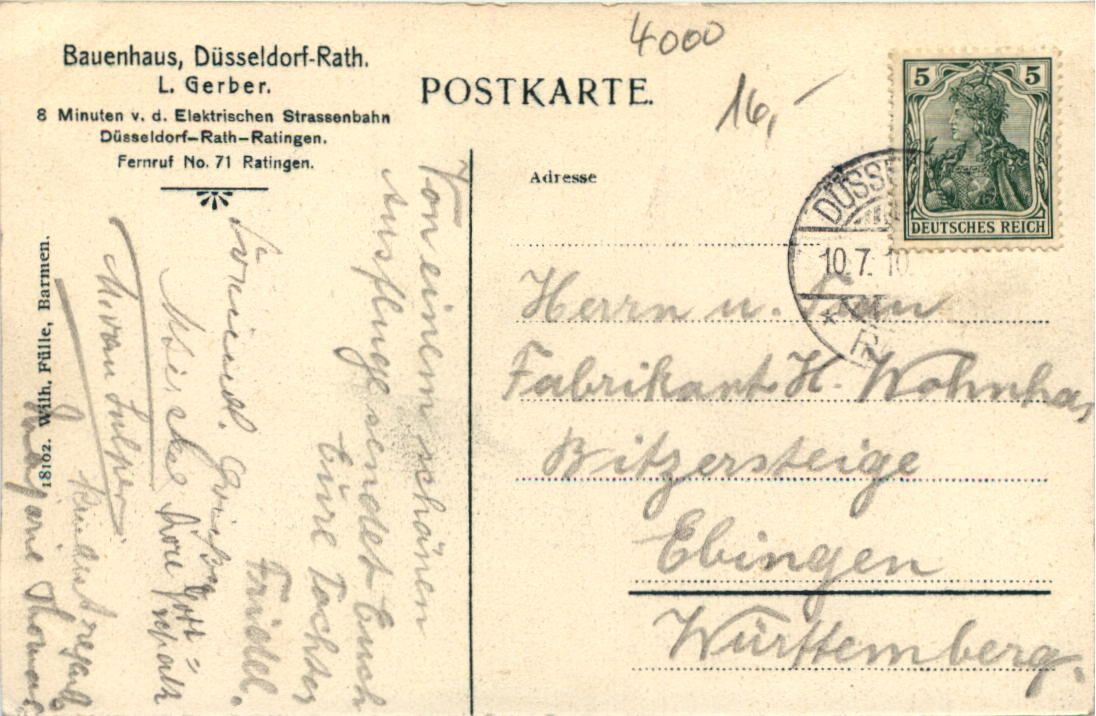 Bauenhaus, Düsseldorf-Rath.
L. Gerber.
8 Minuten v. d. Elektrischen Strassenbahn
Düsseldorf-Rath-Ratingen.
Fernruf No. 71 Ratingen.
POSTKARTE.
4000
16,-
5 5
DEUTSCHES REICH
DÜSS
10.7.10.
Adresse
Herrn u. Frau
Fabrikant H. Wohnhas
Bitzersteige
Ebingen
Württemberg.
Von einem schönen
Ausfluge sendet Euch
Eure Tochter
Friedel.
Freundl.
Kindest regards
Marjorie Thomas
18102. Wilh. Fülle, Barmen.